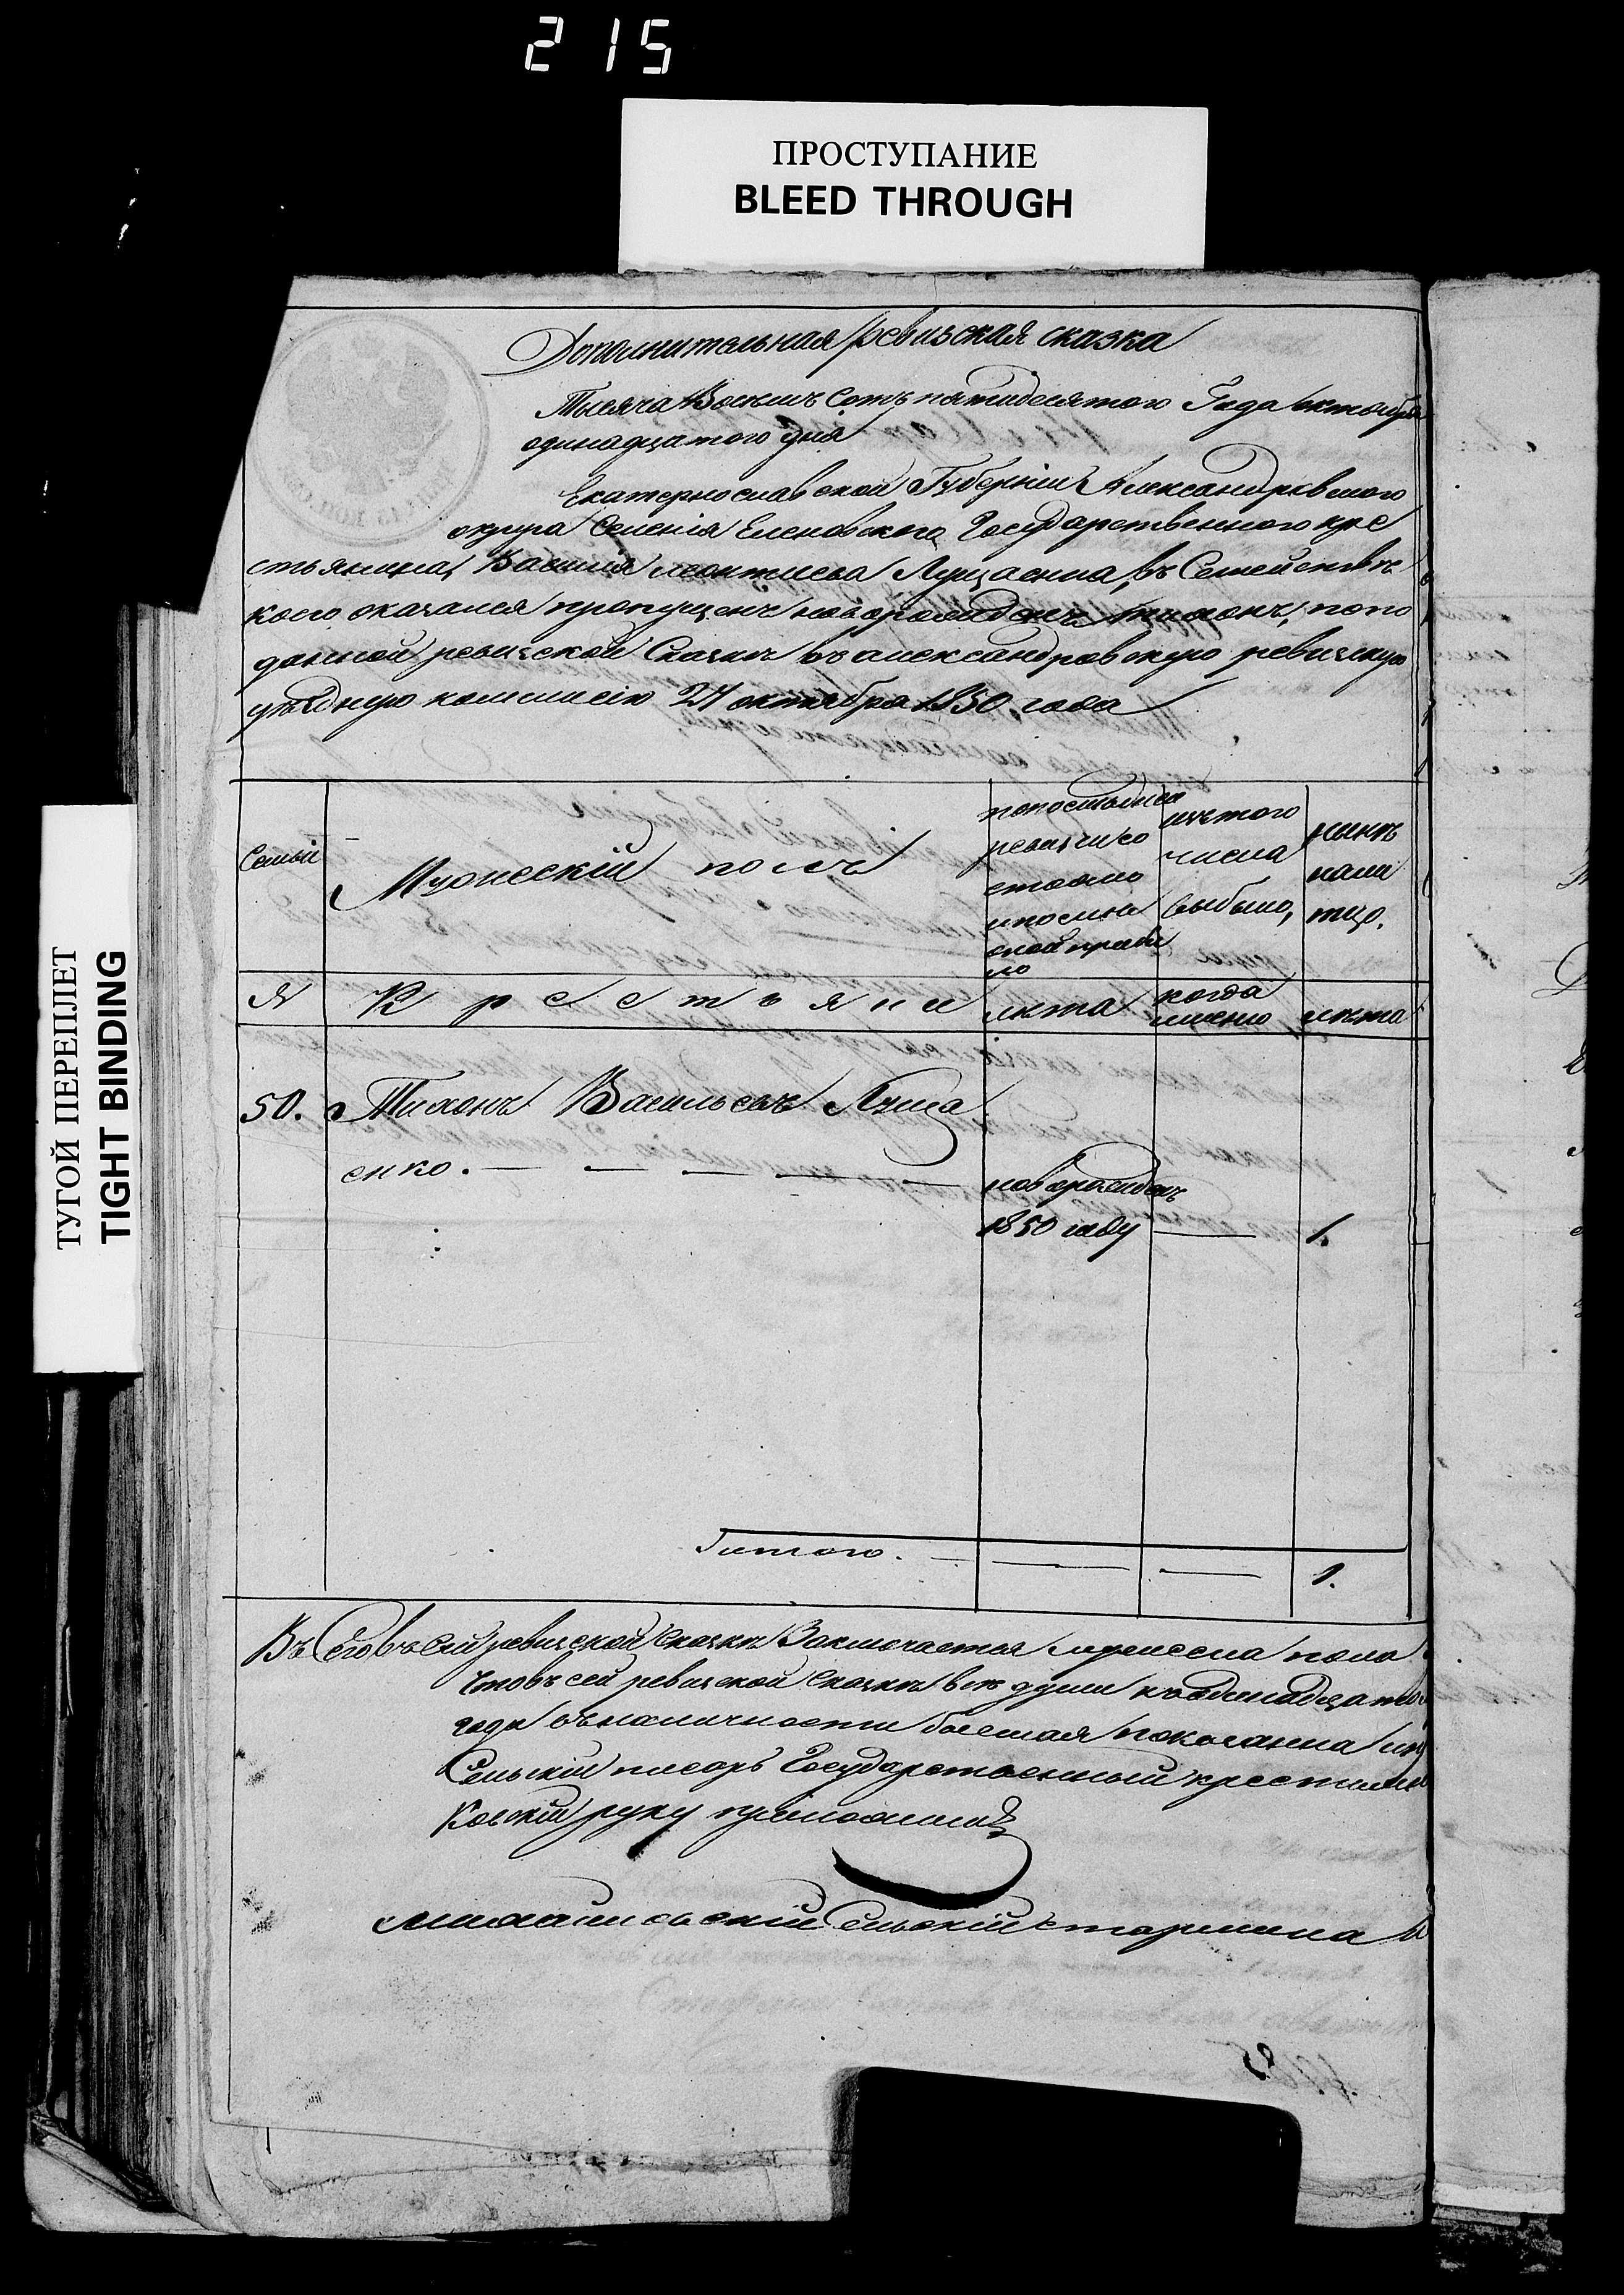 215
ПРОСТУПАНИЕ
BLEED THROUGH
ТУГОЙ ПЕРЕПЛЕТ
TIGHT BINDING
Дополнительная ревизская сказка
Тысяча Восемь Сотъ пятидесятого Года октября
одинадцатого дня
Екатеринославской Губерніи Александровского
округа Селенія Еленовского Государственного кре
стьянина, Василія леонтиева Лущаенка, въ Семействѣ
коего оказался пропущенъ новорожденъ тихонъ, попо
данной ревизской Сказкѣ въ александровскую ревизкую
уѣздную комисію 21 октября 1850, года
Семьи
Мужескій полъ
попоследней
ревизіи со
стояло
ипослѣ
оной прибы
ло
изътого
числа
выбыло,
нынѣ
нали
тцо.
№
Крестьяне
лѣта
когда
именно
лѣта
50. Тихонъ Васильевъ Луща
енко.
новорожденъ
1850 году
1.
Итого.
1.
Въ Сего въ сей ревизской Сказкѣ Заключается мужеска пола
Чтовъ сей ревизской Сказкѣ всѣ души
года въналичности бывшая показанна
Сельскій писарь Государственный
Ковскій руку приложилъ
михайловскій Сельскій старшина